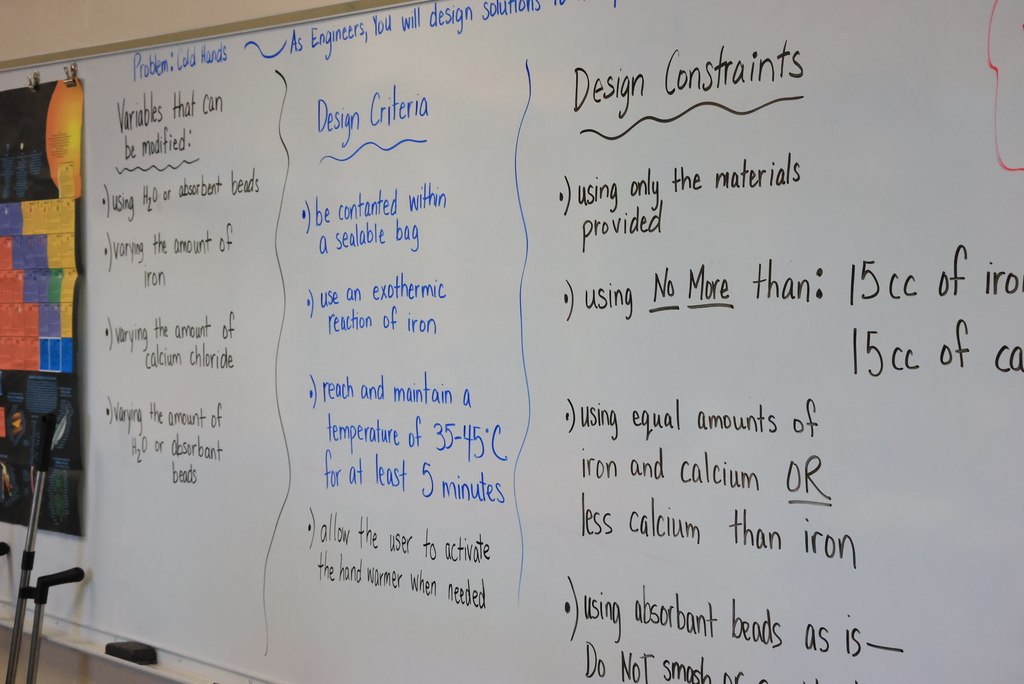 Problem: Cold Hands
As Engineers, You will design solutions
Variables that can
be modified:
•) using H₂O or absorbent beads
•) varying the amount of
iron
•) varying the amount of
calcium chloride
•) varying the amount of
H₂O or absorbant
beads
Design Criteria
•) be contanted within
a sealable bag
•) use an exothermic
reaction of iron
•) reach and maintain a
temperature of 35-45°C
for at least 5 minutes
•) allow the user to activate
the hand warmer when needed
Design Constraints
•) using only the materials
provided
•) using No More than: 15cc of iron
15cc of ca
•) using equal amounts of
iron and calcium OR
less calcium than iron
•) using absorbant beads as is—
Do NOT smash or